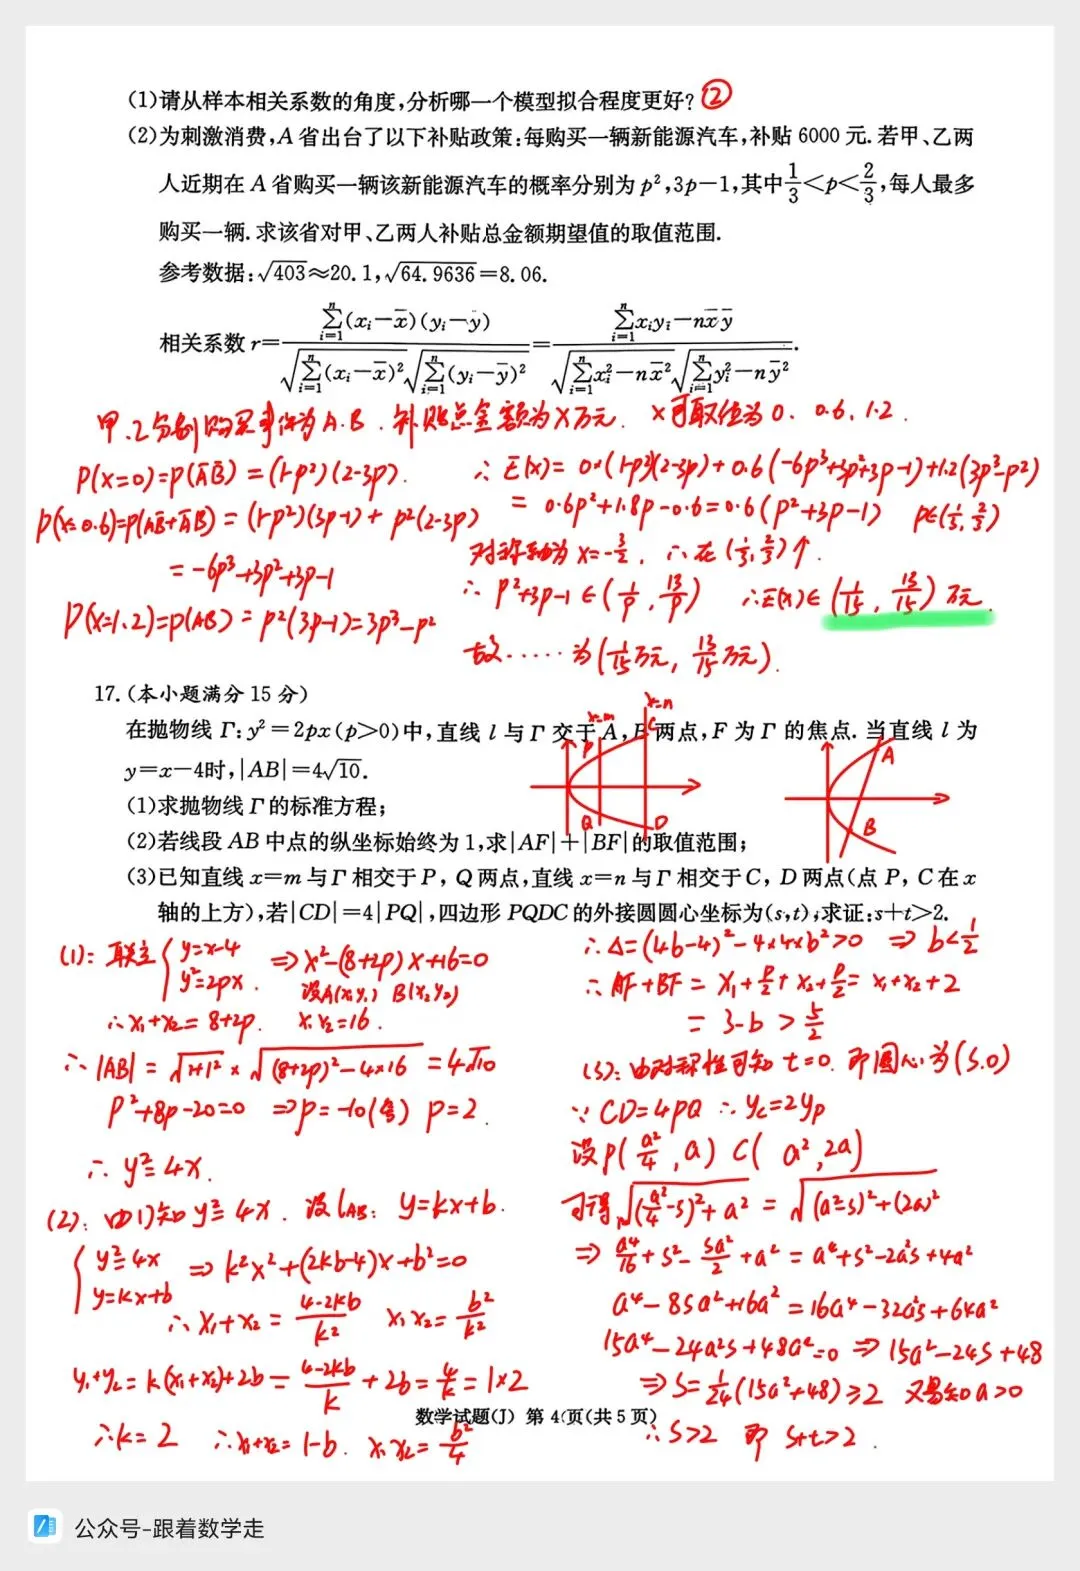 (1)请从样本相关系数的角度,分析哪一个模型拟合程度更好? ②
(2)为刺激消费,A省出台了以下补贴政策:每购买一辆新能源汽车,补贴6000元.若甲、乙两
人近期在A省购买一辆该新能源汽车的概率分别为p²,3p-1,其中1/3<p<2/3,每人最多
购买一辆.求该省对甲、乙两人补贴总金额期望值的取值范围.
参考数据:√403≈20.1,√64.9636=8.06.
相关系数r=∑(i=1→n)(xᵢ-x̄)(yᵢ-ȳ)/(√∑(i=1→n)(xᵢ-x̄)²√∑(i=1→n)(yᵢ-ȳ)²)=(∑(i=1→n)xᵢyᵢ-nx̄ȳ)/(√∑(i=1→n)xᵢ²-nx̄²√∑(i=1→n)yᵢ²-nȳ²).
甲、乙分别购买事件为A.B.补贴总金额为X万元. X可取值为0. 0.6. 1.2.
P(X=0)=P(ĀB̄)=(1-p²)(2-3p).
∴E(X)=0×(1-p²)(2-3p)+0.6(-6p³+3p²+3p-1)+1.2(3p³-p²)
P(X=0.6)=P(AB̄+ĀB)=(1-p²)(3p-1)+p²(2-3p)
=0.6p²+1.8p-0.6=0.6(p²+3p-1) p∈(1/3,2/3)
=-6p³+3p²+3p-1
对称轴为x=-3/2. ∴在(1/3,2/3)↑.
P(X=1.2)=P(AB)=p²(3p-1)=3p³-p²
∴p²+3p-1∈(1/9,13/9) ∴E(X)∈(1/15,13/15)万元.
故……为(1/15万元,13/15万元).
17.(本小题满分15分)
在抛物线Γ:y²=2px(p>0)中,直线l与Γ交于A,B两点,F为Γ的焦点.当直线l为
y=x-4时,|AB|=4√10.
(1)求抛物线Γ的标准方程;
(2)若线段AB中点的纵坐标始终为1,求|AF|+|BF|的取值范围;
(3)已知直线x=m与Γ相交于P,Q两点,直线x=n与Γ相交于C,D两点(点P,C在x
轴的上方),若|CD|=4|PQ|,四边形PQDC的外接圆圆心坐标为(s,t),求证:s+t>2.
x=m
x=n
P
C
Q
D
A
B
(1):联立{y=x-4
y²=2px. ⇒x²-(8+2p)x+16=0
设A(x₁y₁) B(x₂y₂)
∴x₁+x₂=8+2p. x₁x₂=16.
∴|AB|=√1+1²×√(8+2p)²-4×16=4√10
p²+8p-20=0 ⇒p=-10(舍) p=2.
∴y²=4x.
(2):由(1)知y²=4x. 设l_AB:y=kx+b.
{y²=4x
y=kx+b ⇒k²x²+(2kb-4)x+b²=0
∴x₁+x₂=(4-2kb)/k² x₁x₂=b²/k²
y₁+y₂=k(x₁+x₂)+2b=(4-2kb)/k+2b=4/k=1×2
∴k=2 ∴x₁+x₂=1-b. x₁x₂=b²/4
∴Δ=(4b-4)²-4×4×b²>0 ⇒b<1/2
∴AF+BF=x₁+p/2+x₂+p/2=x₁+x₂+2
=3-b>5/2
(3):由对称性可知t=0.即圆心为(s.0)
∵CD=4PQ ∴y_C=2y_P
设P(a²/4,a) C(a²,2a)
可得√(a²/4-s)²+a²=√(a²-s)²+(2a)²
⇒a⁴/16+s²-sa²/2+a²=a⁴+s²-2a²s+4a²
a⁴-8sa²+16a²=16a⁴-32a²s+64a²
15a⁴-24a²s+48a²=0⇒15a²-24s+48
⇒s=1/24(15a²+48)≥2 又易知a>0
∴s>2 即 s+t>2.
数学试题(J) 第4页(共5页)
公众号-跟着数学走